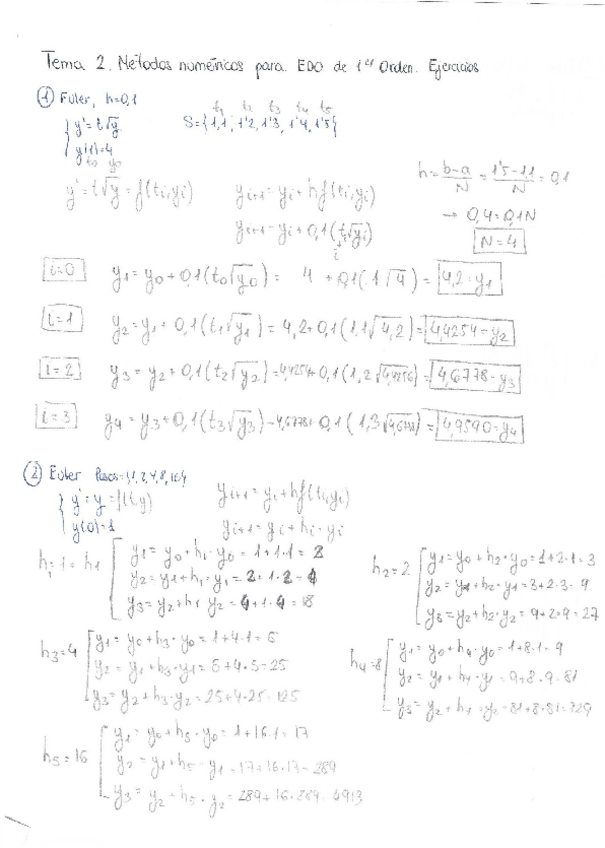 Tema 2. Métodos numéricos para EDO de 1er Orden. Ejercicios
① Euler, h=0,1
t1 t2 t3 t4 t5
{ y'=t√y
S={1,1, 1'2, 1'3, 1'4, 1'5}
y(1)=4
t0 y0
h = b-a / N = 1'5-1,1 / N = 0,1
y'=t√y = f(ti,yi)
yi+1 = yi + hf(ti,yi)
→ 0,4=0,1N
yi+1 = yi + 0,1(ti√yi)
N=4
i=0 y1 = y0 + 0,1(t0√y0) = 4 + 0,1(1√4) = 4,2 = y1
i=1 y2 = y1 + 0,1(t1√y1) = 4,2 + 0,1(1,1√4,2) = 4,4254 = y2
i=2 y3 = y2 + 0,1(t2√y2) = 4,4254 + 0,1(1,2√4,4254) = 4,6778 = y3
i=3 y4 = y3 + 0,1(t3√y3) = 4,6778 + 0,1(1,3√4,6778) = 4,9590 = y4
② Euler Pasos={1,2,4,8,16}
{ y'=y = f(t,y)
yi+1 = yi + hf(ti,yi)
y(0)=1
yi+1 = yi + hi·yi
h1=1=h1
y1 = y0 + h1·y0 = 1+1·1 = 2
y2 = y1 + h1·y1 = 2+1·2 = 4
y3 = y2 + h1 y2 = 4+1·4 = 8
h2=2
y1 = y0 + h2·y0 = 1+2·1 = 3
y2 = y1 + h2·y1 = 3+2·3 = 9
y3 = y2 + h2·y2 = 9+2·9 = 27
h3=4
y1 = y0 + h3·y0 = 1+4·1 = 5
y2 = y1 + h3·y1 = 5+4·5 = 25
y3 = y2 + h3·y2 = 25+4·25 = 125
h4=8
y1 = y0 + h4·y0 = 1+8·1 = 9
y2 = y1 + h4·y1 = 9+8·9 = 81
y3 = y2 + h4·y2 = 81+8·81 = 729
h5=16
y1 = y0 + h5·y0 = 1+16·1 = 17
y2 = y1 + h5·y1 = 17+16·17 = 289
y3 = y2 + h5·y2 = 289+16·289 = 4913